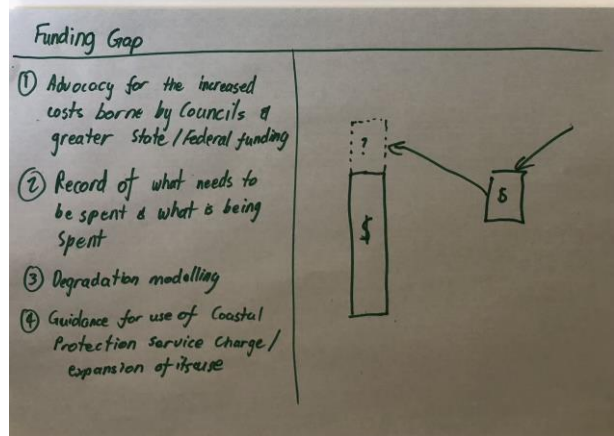 Funding Gap
① Advocacy for the increased
costs borne by Councils &
greater State/Federal funding
② Record of what needs to
be spent & what is being
spent
③ Degradation modelling
④ Guidance for use of Coastal
Protection Service Charge/
expansion of its use
?
$
$